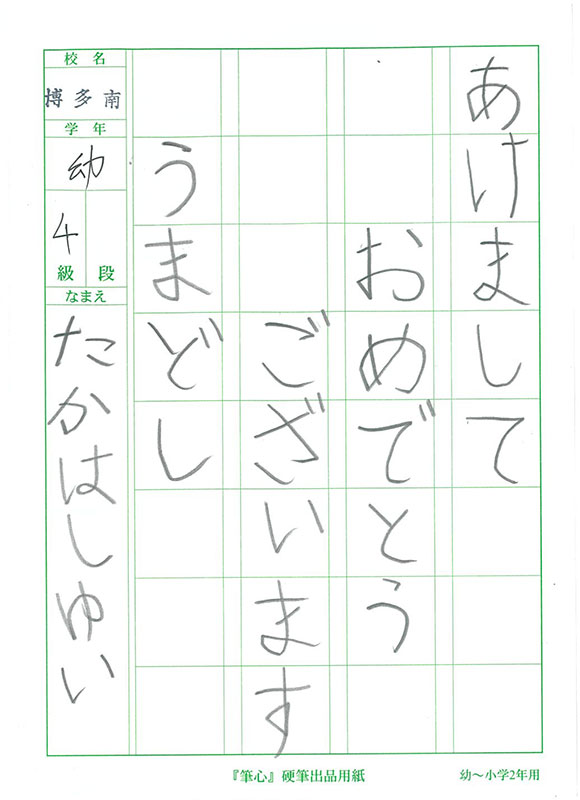 あけまして
おめでとう
ございます
うまどし
校名
博多南
学年
幼
4
級 段
なまえ
たかはしゆい
『筆心』硬筆出品用紙
幼～小学2年用